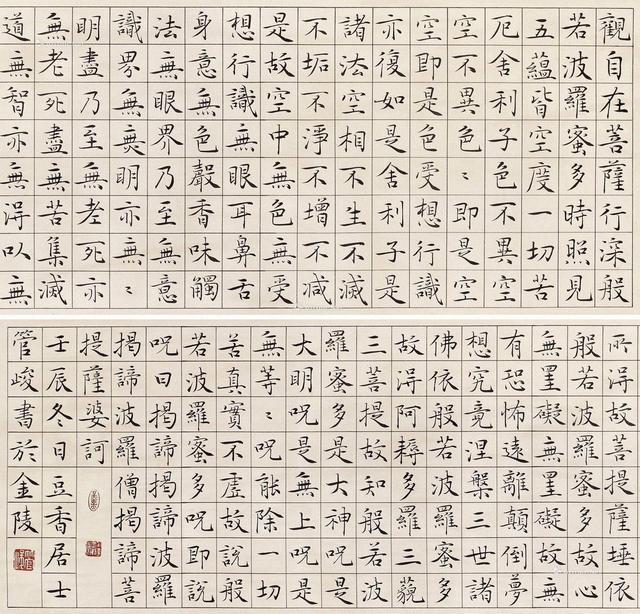 觀自在菩薩行深般
若波羅蜜多時照見
五蘊皆空度一切苦
厄舍利子色不異空
空不異色〻即是空
空即是色受想行識
亦復如是舍利子是
諸法空相不生不滅
不垢不淨不增不減
是故空中無色無受
想行識無眼耳鼻舌
身意無色聲香味觸
法無眼界乃至無意
識界無無明亦無〻
明盡乃至無老死亦
無老死盡無苦集滅
道無智亦無得以無
所得故菩提薩埵依
般若波羅蜜多故心
無罣礙無罣礙故無
有恐怖遠離顛倒夢
想究竟涅槃三世諸
佛依般若波羅蜜多
故得阿耨多羅三藐
三菩提故知般若波
羅蜜多是大神咒是
大明咒是無上咒是
無等〻咒能除一切
苦真實不虛故說般
若波羅蜜多咒即說
咒曰揭諦揭諦波羅
揭諦波羅僧揭諦菩
提薩婆訶
壬辰冬日豆香居士
管峻書於金陵